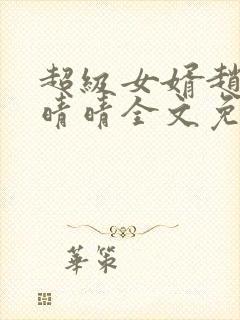 超級女婿趙
晴晴全文免
華策